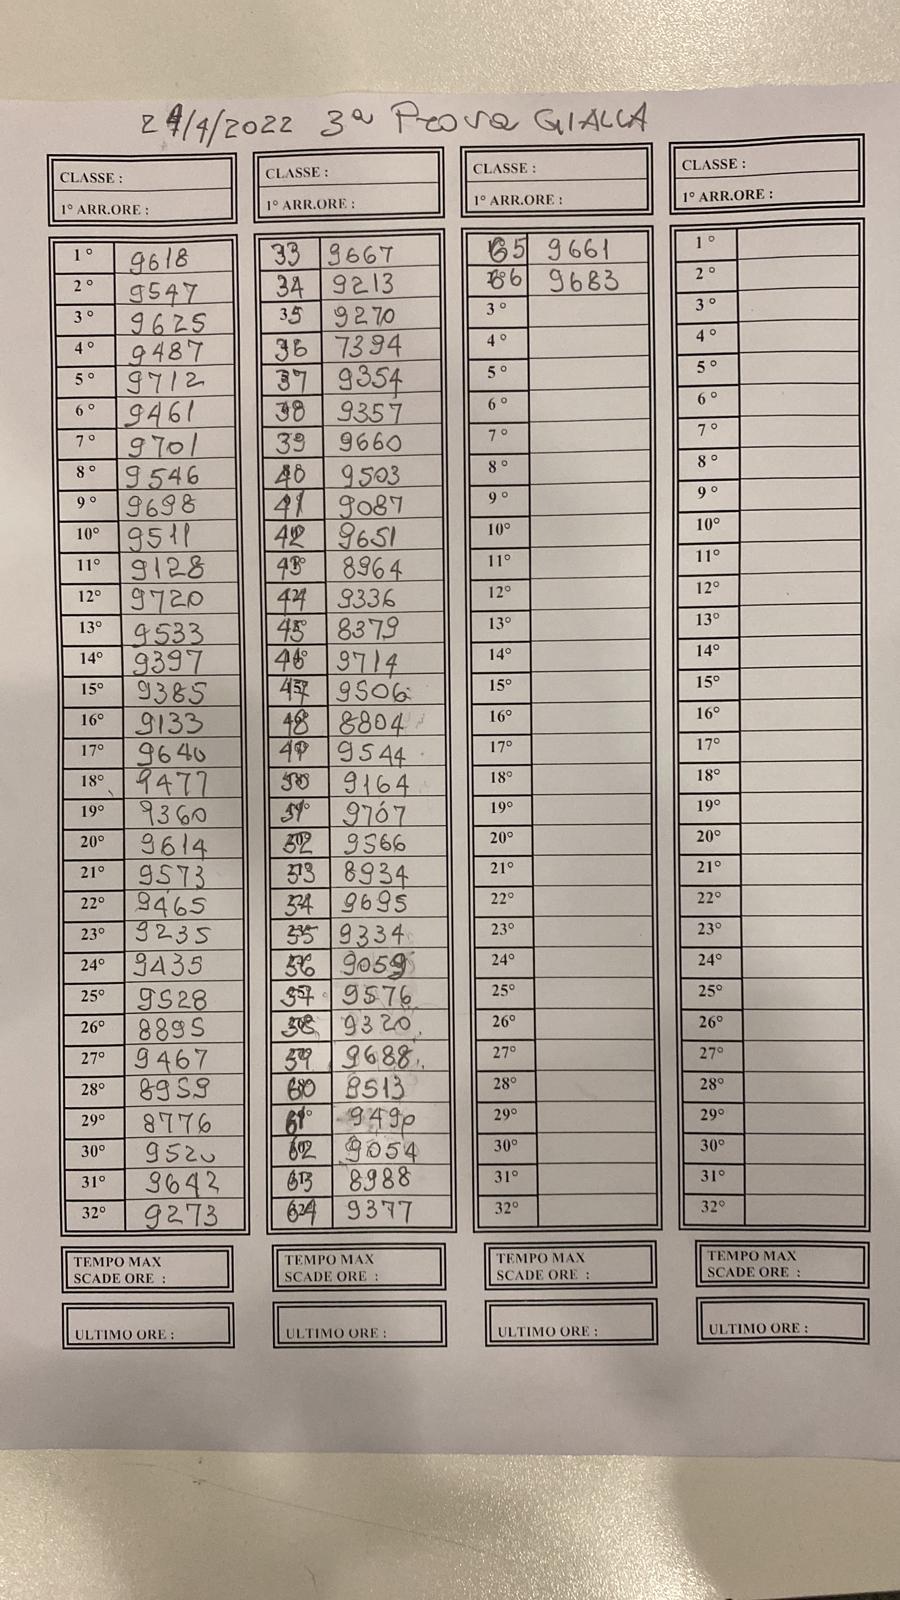 24/4/2022 3ª Prova GIALLA
CLASSE :
1° ARR.ORE :
1° 9618
2° 9547
3° 9625
4° 9487
5° 9712
6° 9461
7° 9701
8° 9546
9° 9698
10° 9511
11° 9128
12° 9720
13° 9533
14° 9397
15° 9385
16° 9133
17° 9640
18° 9477
19° 9360
20° 9614
21° 9573
22° 9465
23° 9235
24° 9435
25° 9528
26° 8895
27° 9467
28° 8959
29° 8776
30° 9520
31° 9642
32° 9273
TEMPO MAX
SCADE ORE :
ULTIMO ORE :
CLASSE :
1° ARR.ORE :
33 9667
34 9213
35 9270
36 7394
37 9354
38 9357
39 9660
40 9503
41 9087
42 9651
43 8964
44 9336
45 8379
46 9714
47 9506
48 8804
49 9544
50 9164
51 9707
52 9566
53 8934
54 9695
55 9334
56 9059
57 9576
58 9320
59 9688
60 8513
61 9490
62 9054
63 8988
64 9377
TEMPO MAX
SCADE ORE :
ULTIMO ORE :
CLASSE :
1° ARR.ORE :
65 9661
66 9683
3°
4°
5°
6°
7°
8°
9°
10°
11°
12°
13°
14°
15°
16°
17°
18°
19°
20°
21°
22°
23°
24°
25°
26°
27°
28°
29°
30°
31°
32°
TEMPO MAX
SCADE ORE :
ULTIMO ORE :
CLASSE :
1° ARR.ORE :
1°
2°
3°
4°
5°
6°
7°
8°
9°
10°
11°
12°
13°
14°
15°
16°
17°
18°
19°
20°
21°
22°
23°
24°
25°
26°
27°
28°
29°
30°
31°
32°
TEMPO MAX
SCADE ORE :
ULTIMO ORE :